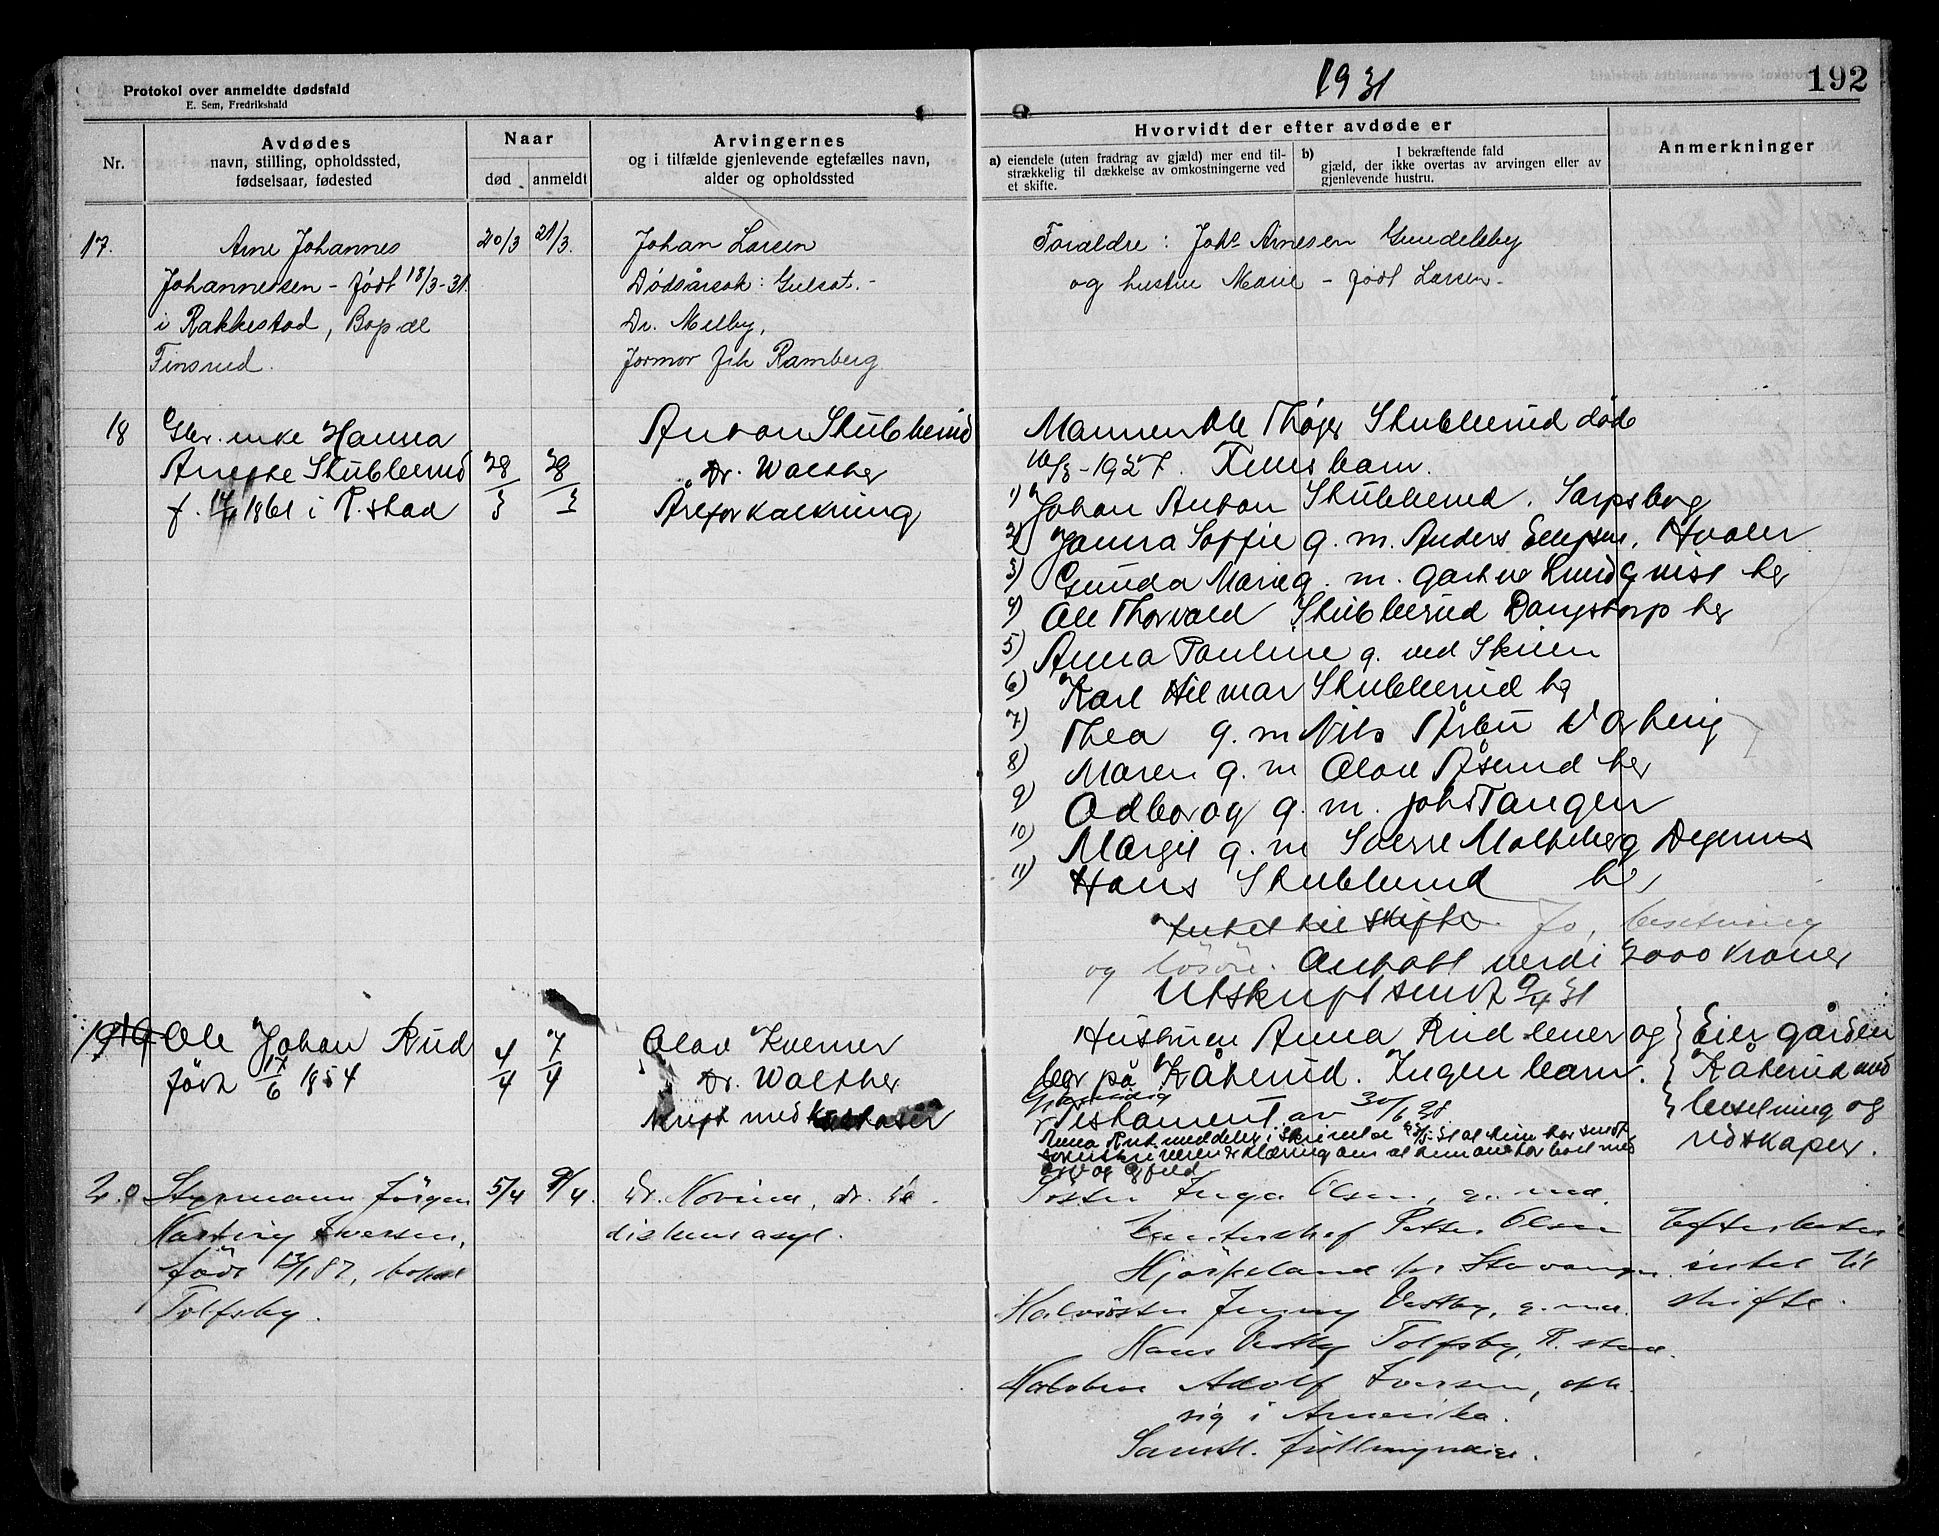 Protokol over anmeldte dødsfald
E. Sem, Fredrikshald
1931
192
Nr.
Avdødes
navn, stilling, opholdssted,
fødselsaar, fødested
Naar
død
anmeldt
Arvingernes
og i tilfælde gjenlevende egtefælles navn,
alder og opholdssted
Hvorvidt der efter avdøde er
a) eiendele (uten fradrag av gjæld) mer end til-
strækkelig til dækkelse av omkostningerne ved
et skifte.
b) I bekræftende fald
gjæld, der ikke overtas av arvingen eller av
gjenlevende hustru.
Anmerkninger
17.
Arne Johannes
Johannessen - født 18/3-31.
i Rakkestad, Bopæl
Finsrud.
20/3
21/3.
Johan Larsen
Dødsårsak: Gulsot. -
Dr. Melby,
Jormor frk Ramberg
Foraldre: Johs Arnesen Gundelsby
og hustru Marie - født Larsen -
18
enke Hanna
Anette Skubberud
f. 1861 i R.stad
28/3
Anton Skubberud
Dr. Walther
Åreforkalkning
Mannen Ole Skubberud døde
1927. Fellesbarn.
1) Johan Anton Skubberud. Sarpsborg
2) g. m. Anders Hvaler
3) Gunda Marie g. m. her
4) Ole Thorvald Skubberud her
5) Anna Pauline g. ved Skien
6) Karl Hilmar Skubberud her
7) Thea g. m Nils
8) Maren g. m Olav Åserud her
9) Odborg g. m. Johs Tangen
10) Margit g. m Sverre Molteberg Degernes
11) Hans Skubberud her
Intet til skifte. Jo, besetning
og løsøre. Antatt verdi 2000 kroner
Utskrift sendt 9/4 31
19
Ole Johan Rud
født 17/6 1854
4/4
7/4
Olav Kverner
Dr. Walther
Hustruen Anna Rud lever og
bor på Kåterud. Ingen barn.
Gjensidig
Testament av 30/6 28
Anna Rud meddeler i skrivelse at hun har sendt
sorenskriveren erklæring om at hun overtar boet med
arv og gjeld
Eier gården
Kåterud med
besetning og
redskaper.
20
Styrmann Jörgen
Iversen,
født bopæl
Tolfsby.
5/4
9/4.
Søster Inga Olsen, g. med
Petter Olsen
Hjörpeland pr. Stavanger.
Halvsöster Jenny Vestby, g. med
Hans Vestby Tolfsby, R.stad.
Halvbror Adolf Iversen, oph.
sig i Amerika.
Samtl. fuldmyndige.
Efterlater
intet til
skifte.